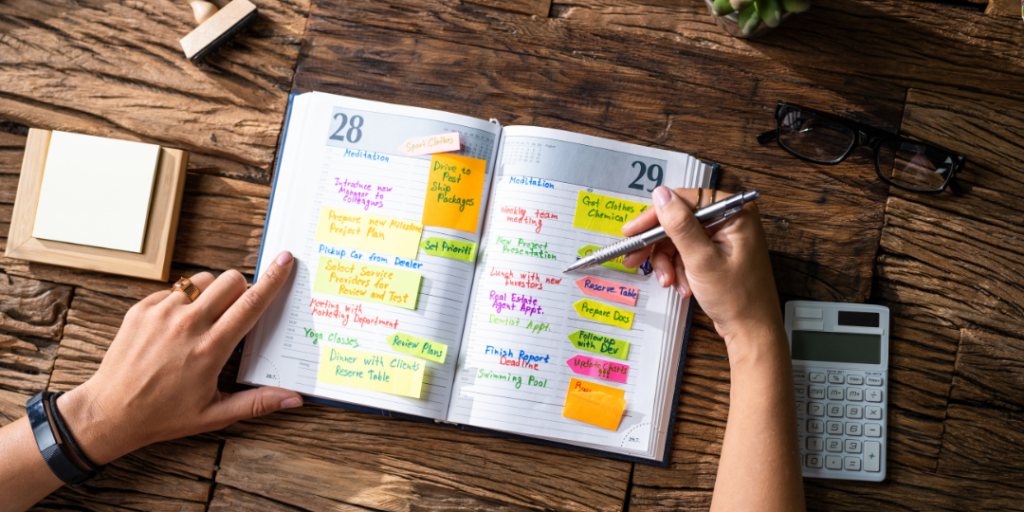 28
Sport Clothes
Meditation
Drive to
Post
Ship
Packages
Introduce new
Manager to
Colleagues
Prepare new Milestone
Project Plan
Set Prioriti
Pickup Car from Dealer
Select Service
Providers for
Review and Test
Meeting with
Marketing Department
Review Plans
Yoga Classes
Dinner with Clients
Reserve Table
29
Meditation
Get Clothes
Chemical
Weekly team
meeting
New Project
Presentation
Lunch with new
Investors
Reserve Table
Real Estate
Agent Appt.
Prepare Docs
Dentist Appt.
Followup
with Dev
Finish Report
Deadline
Update
Swimming Pool